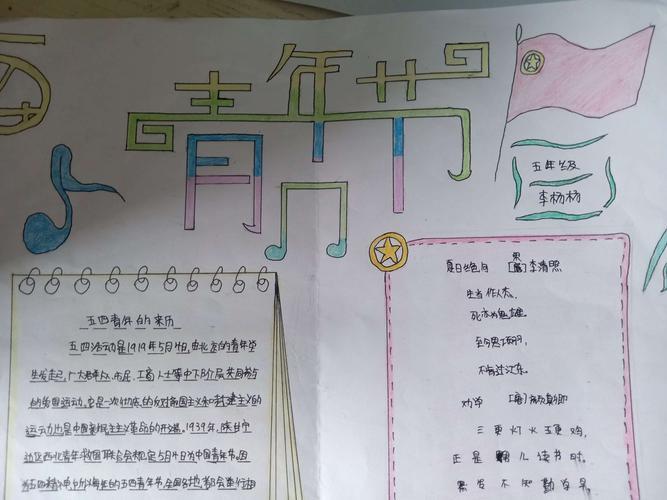 青年节
五年级
李杨杨
夏日绝句 [宋]李清照
生当作人杰,
死亦为鬼雄。
至今思项羽,
不肯过江东。
劝学 [唐]颜真卿
三更灯火五更鸡,
正是男儿读书时,
黑发不知勤学早,
五四青年的来历
五四运动是1919年5月4日,由北京的青年学
生发起,广大群众、市民、工商人士等中下阶层共同参与
的爱国运动,它是一次彻底的反对帝国主义和封建主义的
运动,也是中国新民主主义革命的开端。1939年,陕甘宁
边区西北青年救国联合会规定5月4日为中国青年节,因
五四精神,
每年的五四青年节,全国各地都会举行相